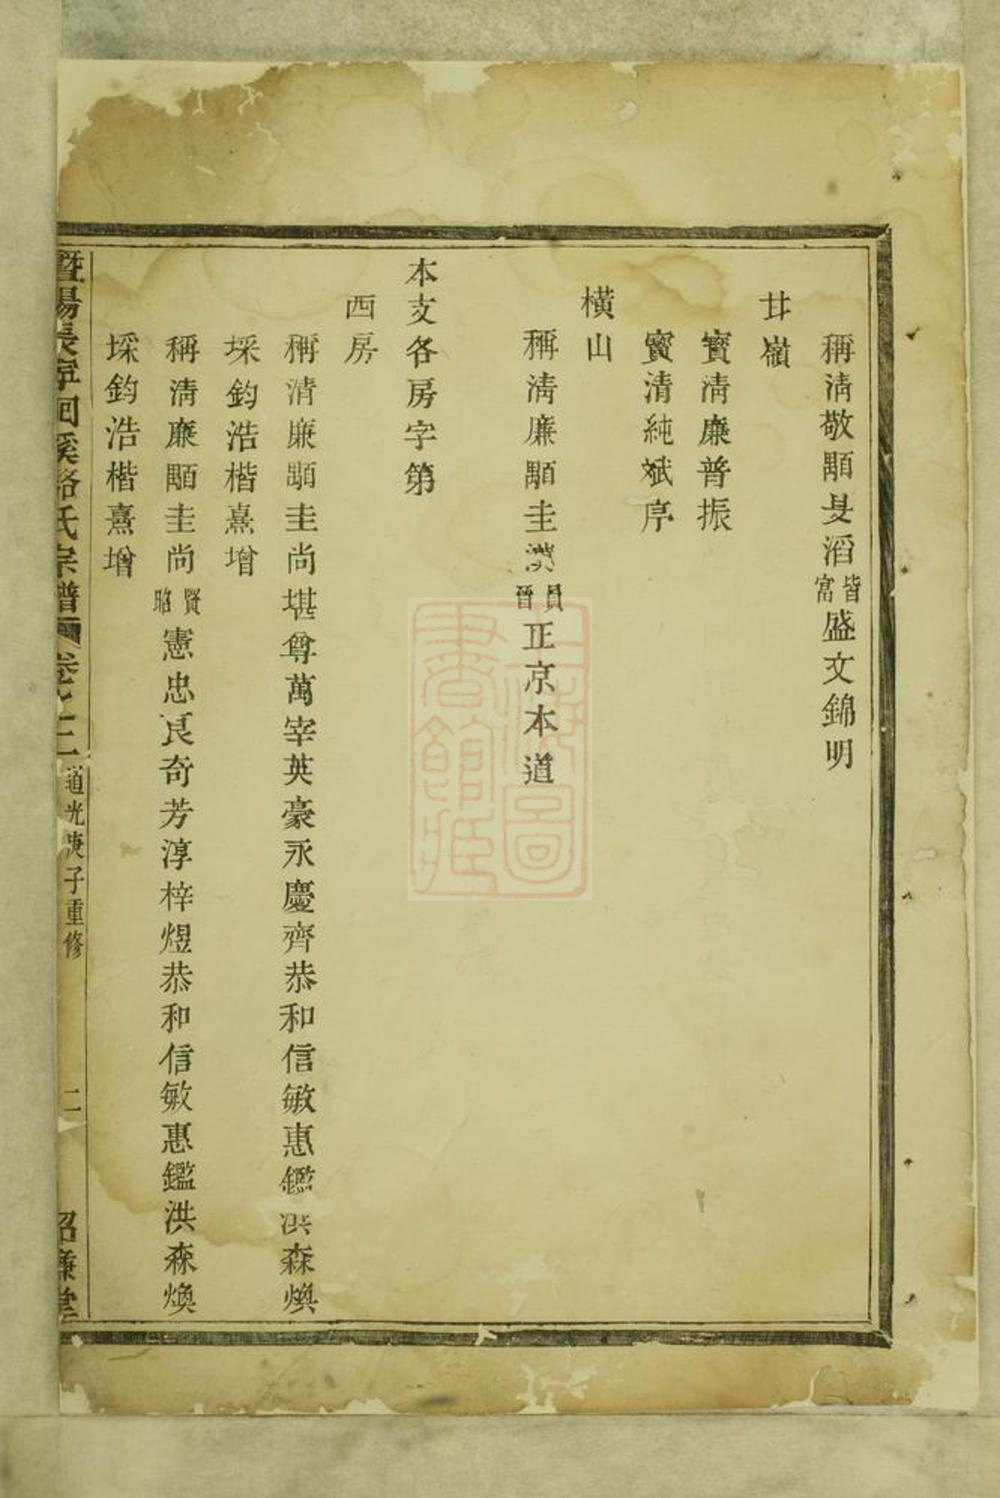 稱淸敬顒旻滔皆富盛文錦明
廿嶺
寳淸廉普振
寳清純斌序
橫山
稱淸廉顒圭滎員晉正京本道
本支各房字第
西房
稱清廉顒圭尚堪尊萬宰英豪永慶齊恭和信敏惠鑑洪森煥
埰鈞浩楷熹增
稱淸廉顒圭尚賢昭憲忠良奇芳淳梓煜恭和信敏惠鑑洪森煥
埰鈞浩楷熹增
暨陽長寧回溪駱氏宗譜 卷十二 道光庚子重修 二
上海圖書館藏